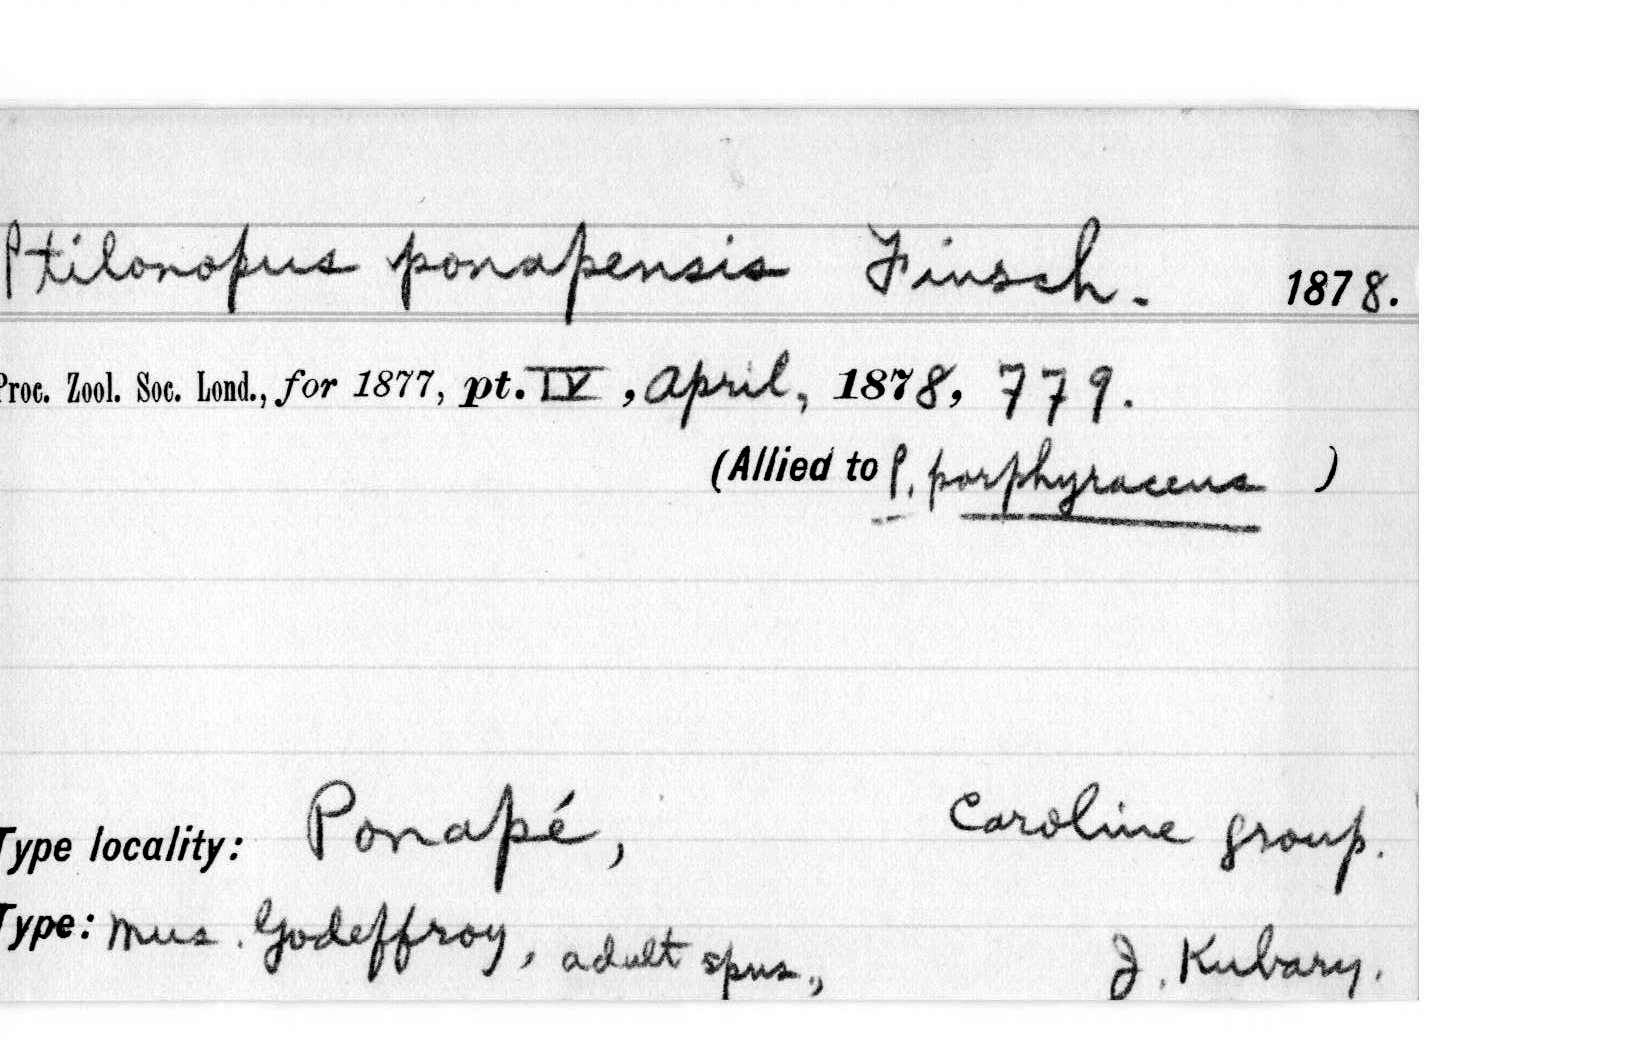 Ptilonopus ponapensis Finsch. 1878.
Proc. Zool. Soc. Lond., for 1877, pt. IV, April, 1878, 779.
(Allied to P. porphyraceus )
Type locality: Ponapé, Caroline group.
Type: Mus. Godeffroy, adult spns., J. Kubary.